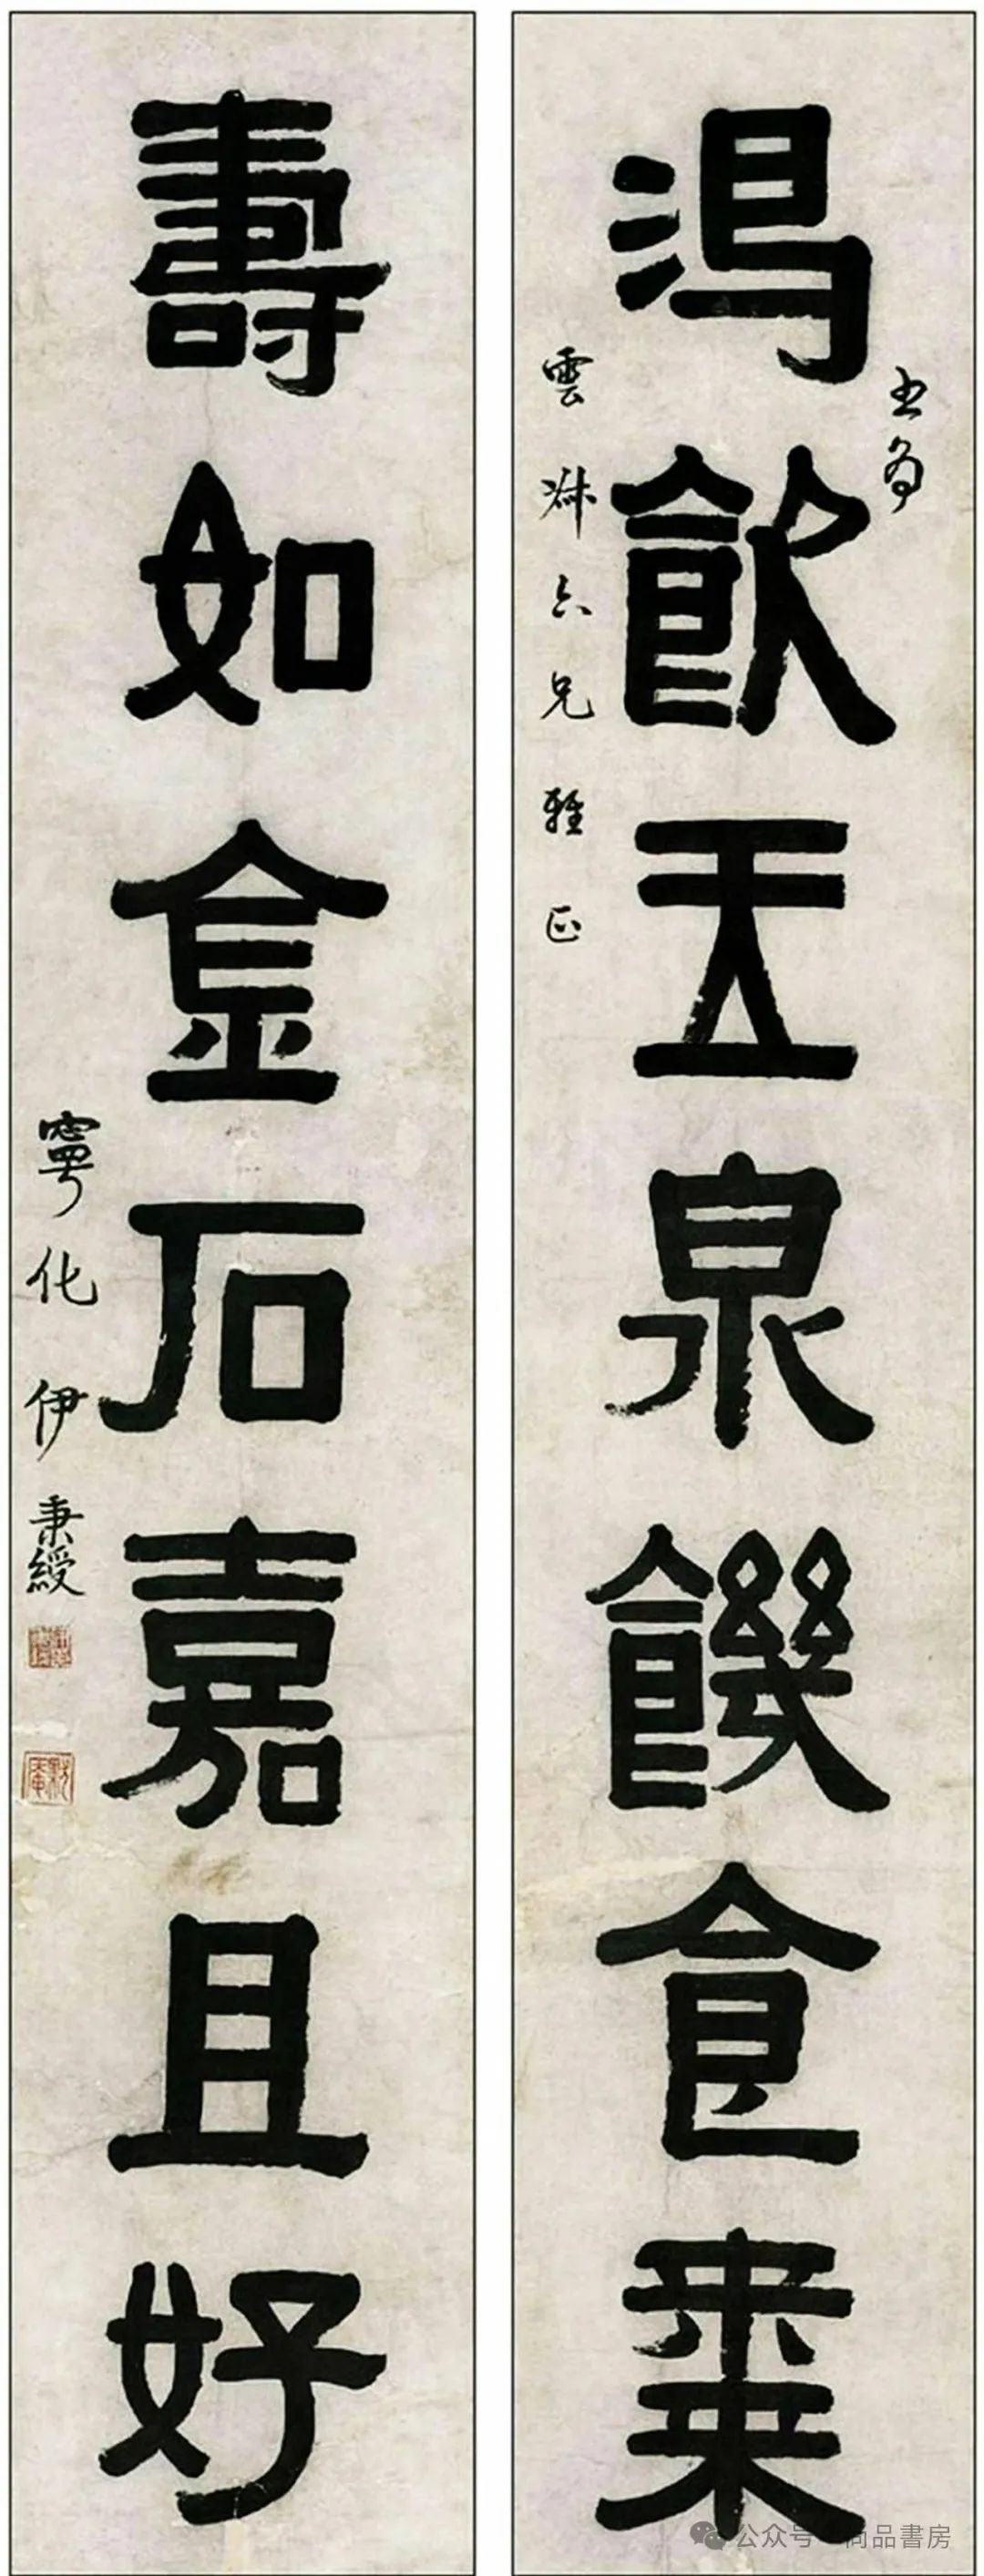 渴飲玉泉饑食棗
書為
雲六兄雅正
壽如金石嘉且好
寧化伊秉綬
默庵
公众号 尚品書房